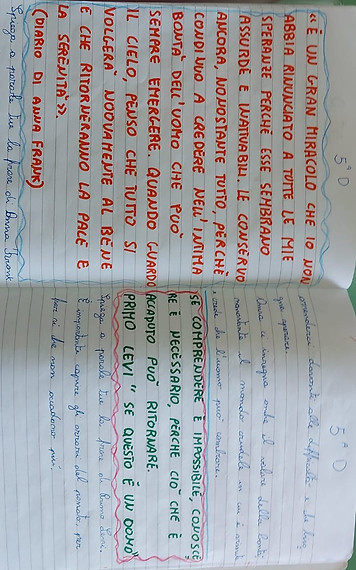 5ª D
«È UN GRAN MIRACOLO CHE IO NON
ABBIA RINUNCIATO A TUTTE LE MIE
SPERANZE PERCHÈ ESSE SEMBRANO
ASSURDE E INATTUABILI. LE CONSERVO
ANCORA, NONOSTANTE TUTTO, PERCHÈ
CONTINUO A CREDERE NELL'INTIMA
BONTÀ DELL'UOMO CHE PUÒ
SEMPRE EMERGERE. QUANDO GUARDO
IL CIELO, PENSO CHE TUTTO SI
VOLGERÀ NUOVAMENTE AL BENE
E CHE RITORNERANNO LA PACE E
LA SERENITÀ».
(DIARIO DI ANNA FRANK)
Spiega a parole tue la frase di Anna Frank
5ª D
arrendersi davanti alle difficoltà e di
sperare.
Anna ci insegna anche il valore della bontà,
nonostante il mondo crudele in cui è
e crede che l'uomo può cambiare.
SE COMPRENDERE È IMPOSSIBILE, CONOSCE
RE È NECESSARIO, PERCHÈ CIÒ CHE È
ACCADUTO PUÒ RITORNARE.
PRIMO LEVI "SE QUESTO È UN UOMO"
Spiega a parole tue la frase di Primo Levi.
È importante capire gli errori del passato, per
far sì che non accadano più.